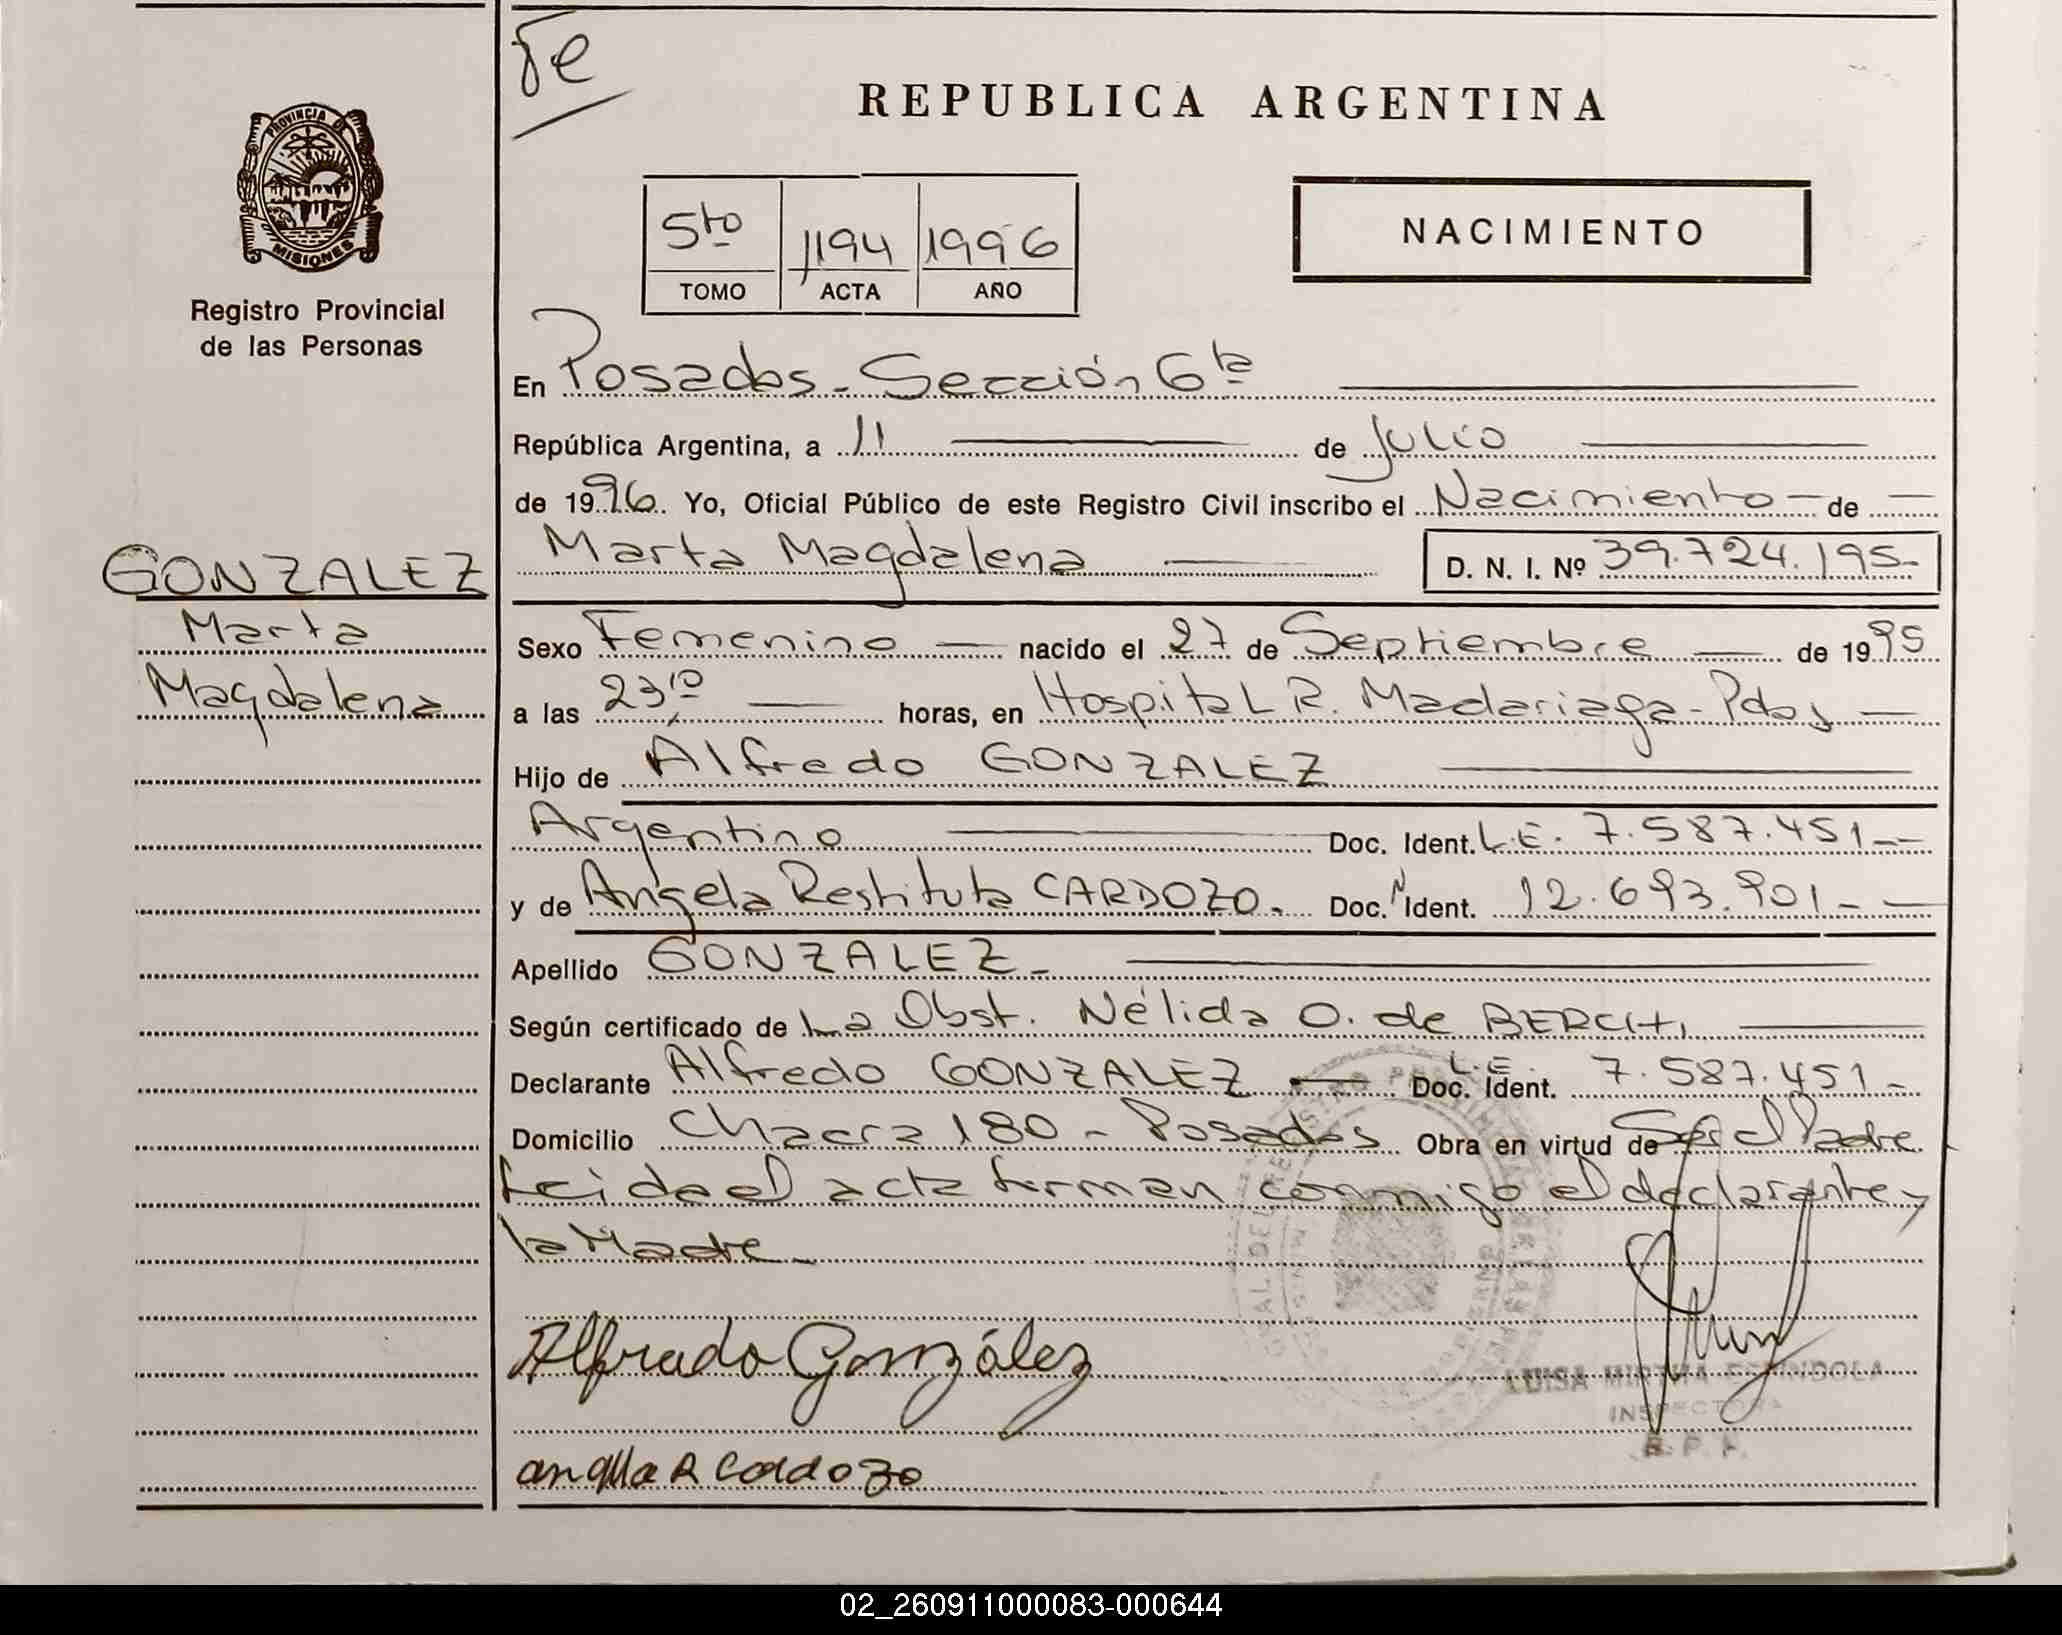 Fe
REPUBLICA ARGENTINA
PROVINCIA DE
MISIONES
Registro Provincial
de las Personas
5to 1194 1996
TOMO ACTA AÑO
NACIMIENTO
En Posadas - Sección 6ta
República Argentina, a 11 de Julio
de 1996. Yo, Oficial Público de este Registro Civil inscribo el Nacimiento de
Marta Magdalena D. N. I. Nº 39.724.195-
GONZALEZ
Marta
Magdalena
Sexo Femenino nacido el 27 de Septiembre de 1995
a las 23,10 horas, en Hospital R. Madariaga - Pdas
Hijo de Alfredo GONZALEZ
Argentino Doc. Ident. L.E. 7.587.451
y de Angela Restituta CARDOZO. Doc. Ident. 12.693.901
Apellido GONZALEZ
Según certificado de La Obst. Nélida O. de
Declarante Alfredo GONZALEZ Doc. Ident. L.E. 7.587.451
Domicilio Chacra 180 - Posadas Obra en virtud de Ser el Padre
Leida el acta firman conmigo el declarante y
la Madre
Alfredo González
LUISA MIRTHA ESPINDOLA
INSPECTORA
R. P. P.
angela R Cardozo
02_260911000083-000644